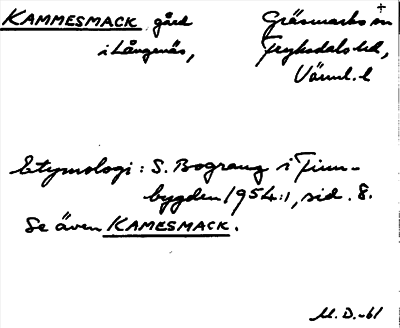 KAMMESMACK gård
i Långenäs,
Gräsmarks sn
Fryksdals hd,
Värml. l
+
Etymologi: S. Bograng i Finn-
bygden 1954:1, sid. 8.
Se även KAMESMACK.
M. D. -61